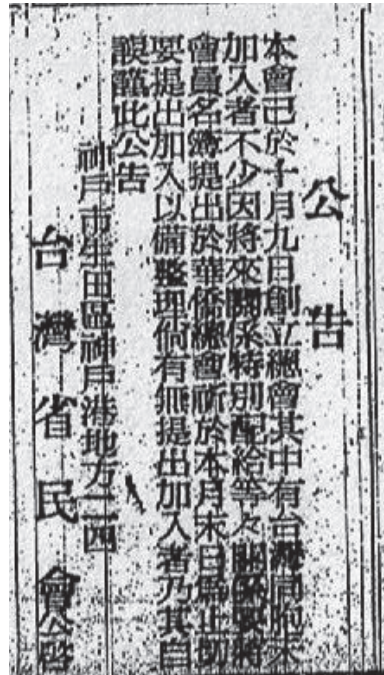 公告
本會已於十月九日創立總會其中有台灣同胞未
加入者不少因將來關係特別配給等々關係要將
會員名簿提出於華僑總會祈於本月末日為止切
要提出加入以備整理倘有無提出加入者乃其自
誤謹此公告
神戶市生田區神戶港地方二四
台灣省民會公啓